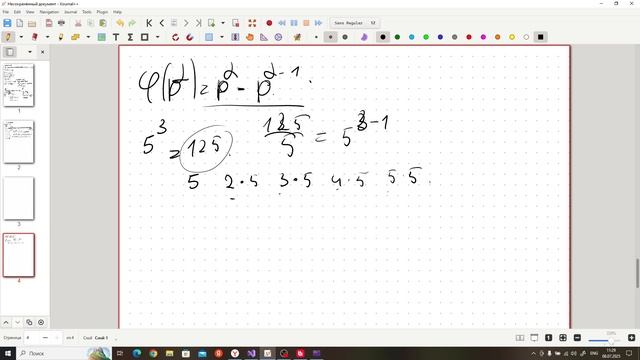 Несохранённый документ - Xournal++
File Edit View Navigation Journal Tools Plugin Help
Sans Regular 12
1
2
3
4
φ(p^α) = p^α - p^(α-1).
5^3 = 125. 125/5 = 5^(3-1)
5 2·5 3·5 4·5 5·5.
Страница 4 из 4 Слой Слой 1
Поиск ENG 11:29 06.07.2025